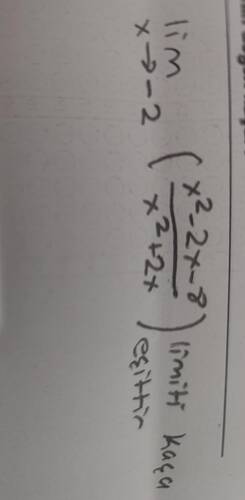 lim x→-2 (x²-2x-8 / x²+2x) limiti kaça
eşittir